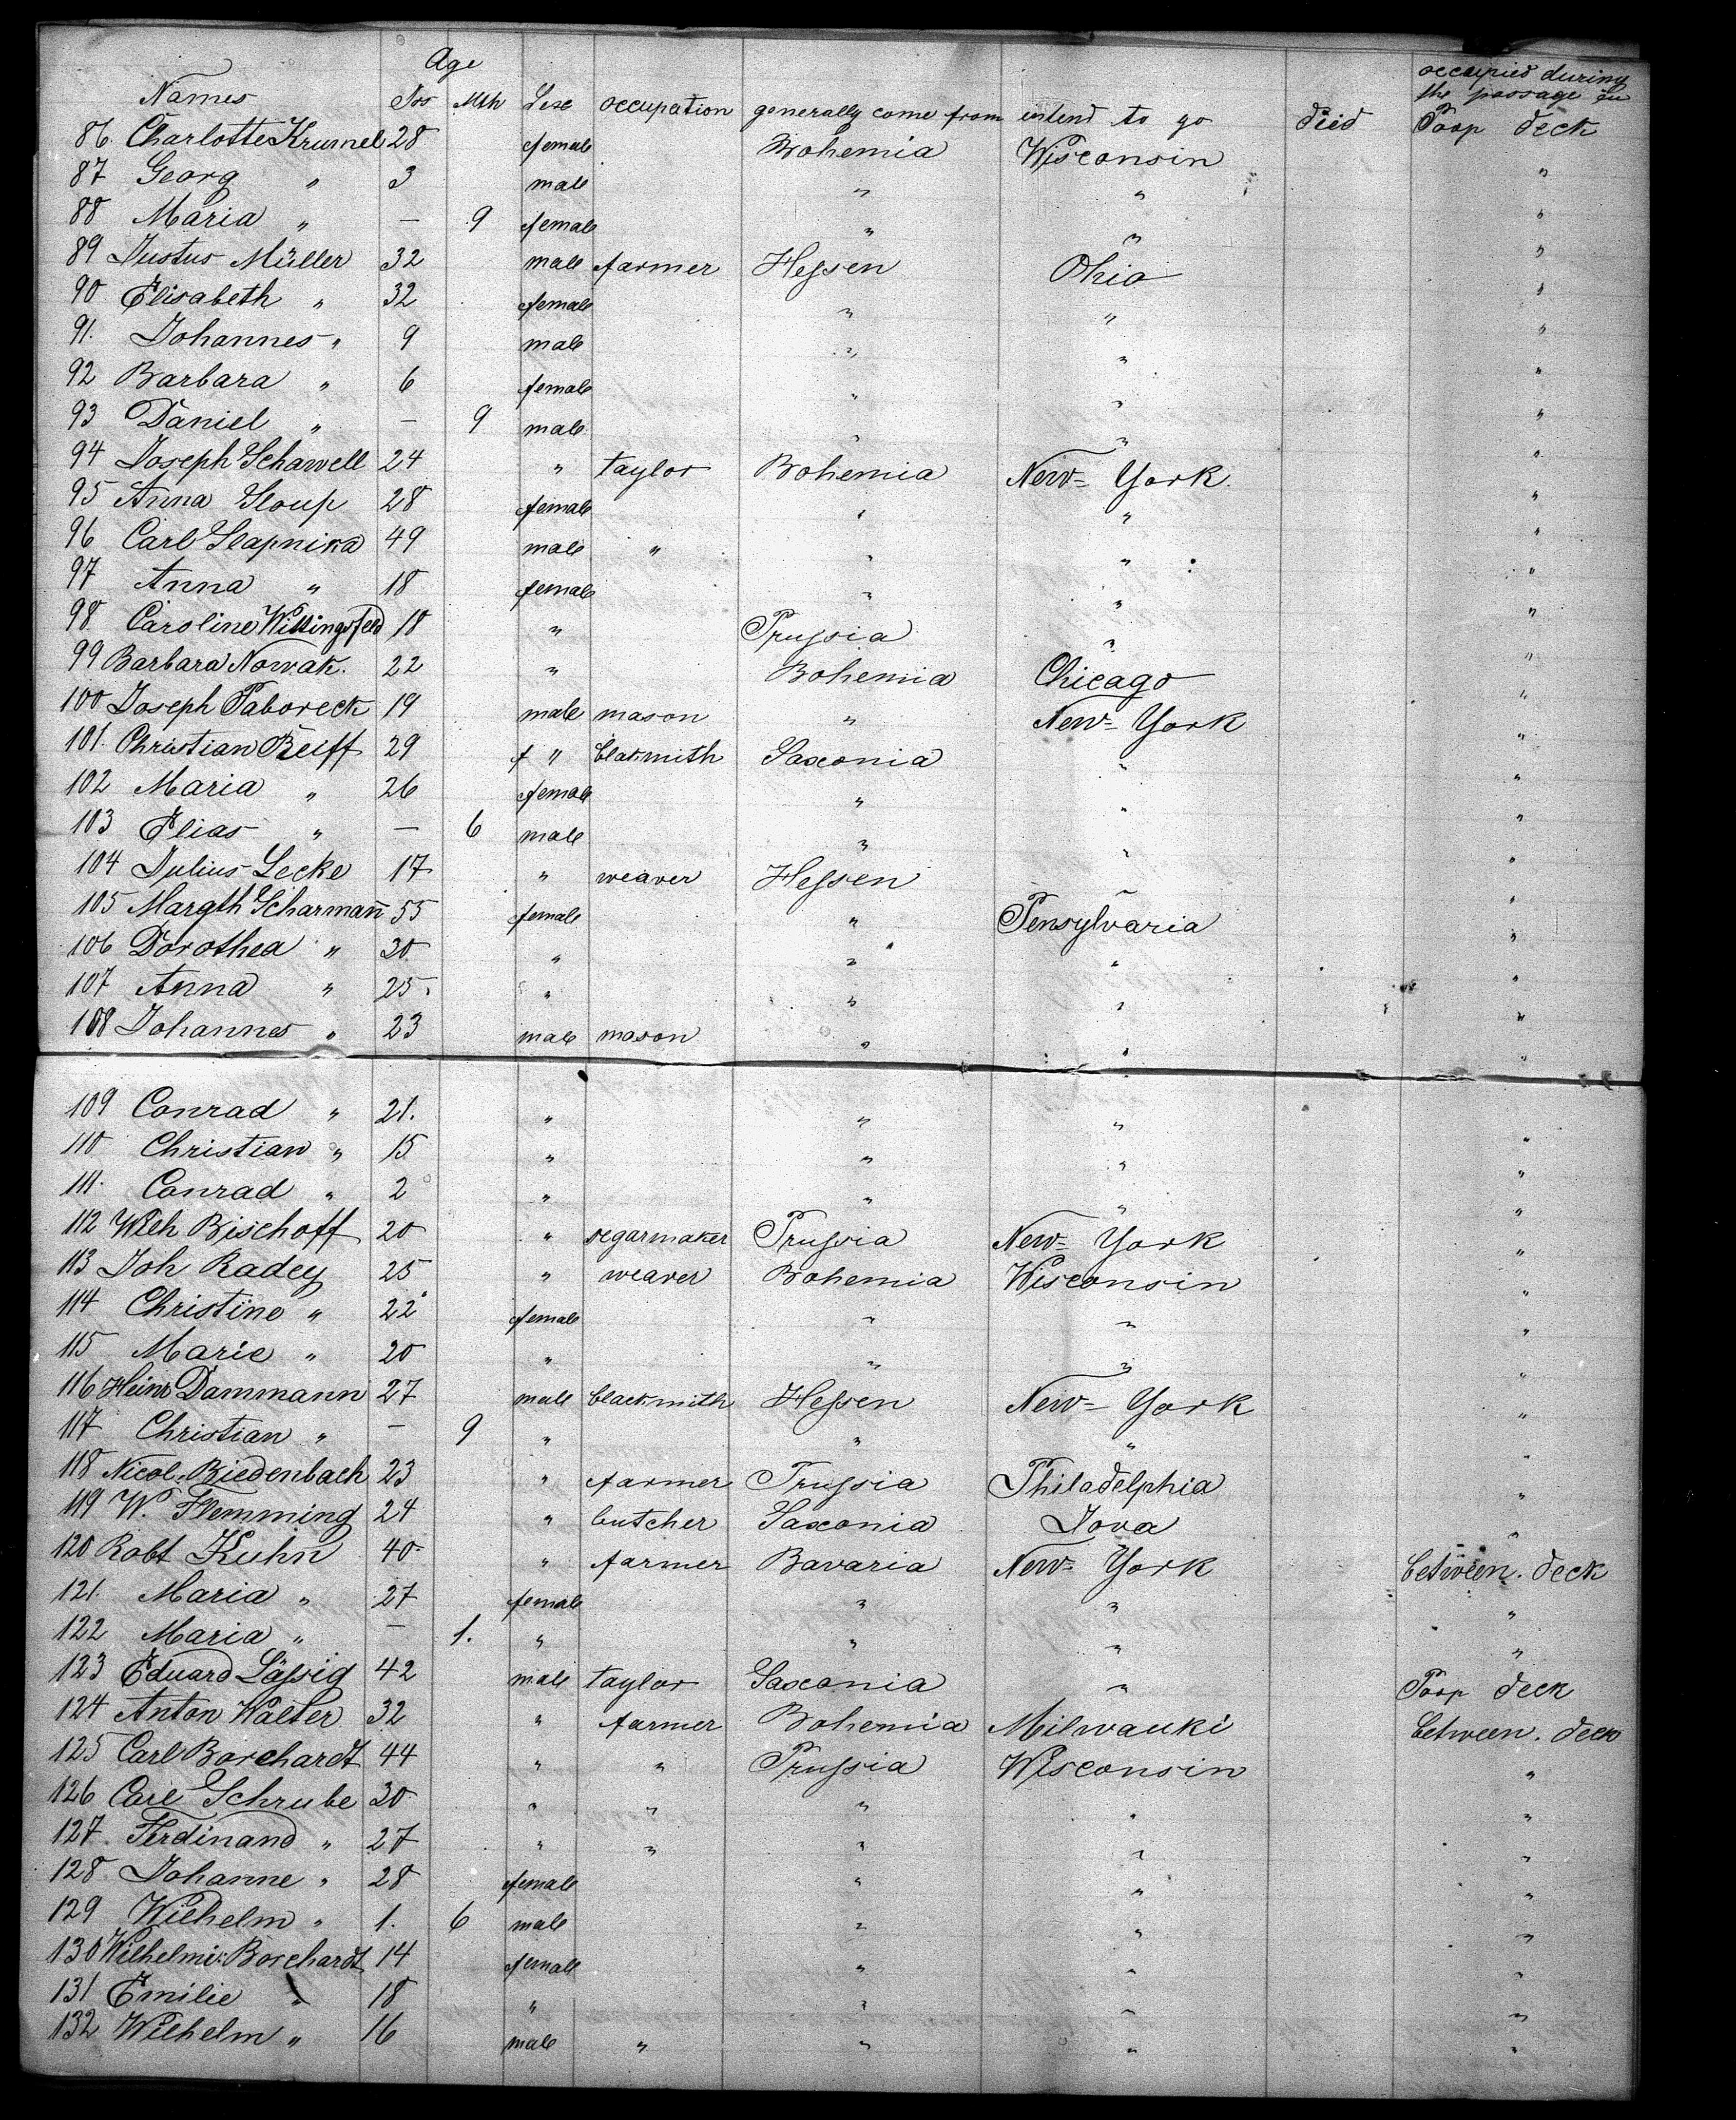 Age
occupied during
Names Mth Sex occupation generally come from intend to go died the passage in
86. Charlotte Krumel 28 female Bohemia Wisconsin Poop deck
87 Georg " 3 male " " "
88 Maria " — 9 female " " "
89 Justus Müller 32 male farmer Hessen Ohio "
90 Elisabeth " 32 female " " "
91. Johannes " 9 male " " "
92 Barbara " 6 female " " "
93 Daniel " — 9 male " " "
94 Joseph Schawell 24 " taylor Bohemia New-York. "
95 Anna Sloup 28 female " " "
96 Carl Slapnika 49 male " " " "
97 Anna " 18 female " " "
98 Caroline Willingsfeld 18 " Prussia " "
99 Barbara Nowak. 22 " Bohemia Chicago "
100 Joseph Taboreck 19 male mason " New-York "
101. Christian Reiff 29 f " blaksmith Saxonia " "
102 Maria " 26 female " " "
103 Elias " — 6 male " " "
104 Julius Lecke 17 " weaver Hessen " "
105 Margth Scharman̄ 55 female " Pensylvaria "
106 Dorothea " 30 " " " "
107 Anna " 25. " " " "
108 Johannes " 23 male mason " " "
109 Conrad " 21. " " " "
110 Christian " 15 " " " "
111. Conrad " 2 " " " "
112 Wilh Bischoff 20 " segarmaker Prussia New-York "
113 Joh Radey 25 " weaver Bohemia Wisconsin "
114 Christine " 22 female " " "
115 Marie " 20 " " " "
116 Heinr Dammann 27 male blacksmith Hessen New-York "
117 Christian " — 9 " " " "
118 Nicol. Riedenbach 23 " farmer Prussia Philadelphia "
119 W. Flemming 24 " butcher Saxonia Jova "
120 Robt Kuhn 40 " farmer Bavaria New-York between. deck
121. Maria " 27 female " " "
122 Maria " — 1. " " " "
123 Eduard Lässig 42 male taylor Saxonia " Poop deck
124 Anton Walter 32 " farmer Bohemia Milwauki between. deck
125 Carl Borchardt 44 " " Prussia Wisconsin "
126 Carl Schrube 30 " " " " "
127. Ferdinand " 27 " " " " "
128 Johanne " 28 female " " "
129 Wilhelm " 1. 6 male " " "
130 Wilhelmi. Borchardt 14 female " " "
131 Emilie " 18 " " " "
132 Wilhelm " 16 male " " " "